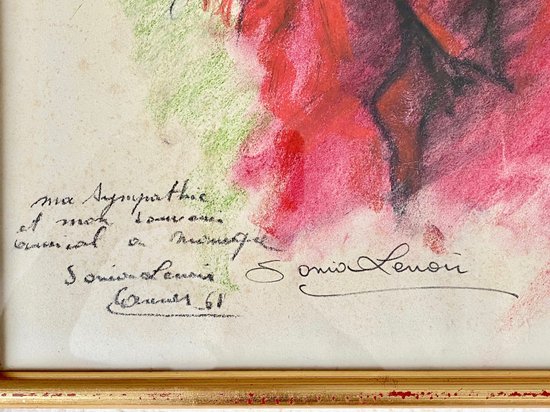 ma sympathie
et mon souvenir
amical a
Sonia Lenoir
Cannes 61
Sonia Lenoir